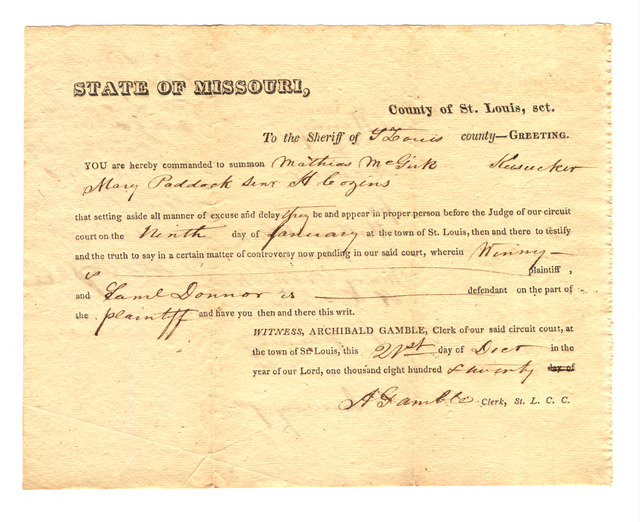 STATE OF MISSOURI,
County of St. Louis, sct.
To the Sheriff of St Louis county—GREETING.
YOU are hereby commanded to summon Mathias McGirk
Mary Paddock Senr H Cozens
that setting aside all manner of excuse and delay they be and appear in proper person before the Judge of our circuit
court on the Ninth day of January at the town of St. Louis, then and there to testify
and the truth to say in a certain matter of controversy now pending in our said court, wherein Winny —
is plaintiff ,
and Saml Donnor is defendant on the part of
the plaintiff and have you then and there this writ.
WITNESS, ARCHIBALD GAMBLE, Clerk of our said circuit court, at
the town of St. Louis, this 21st day of Decr in the
year of our Lord, one thousand eight hundred & twenty day of
A Gamble Clerk, St. L. C. C.